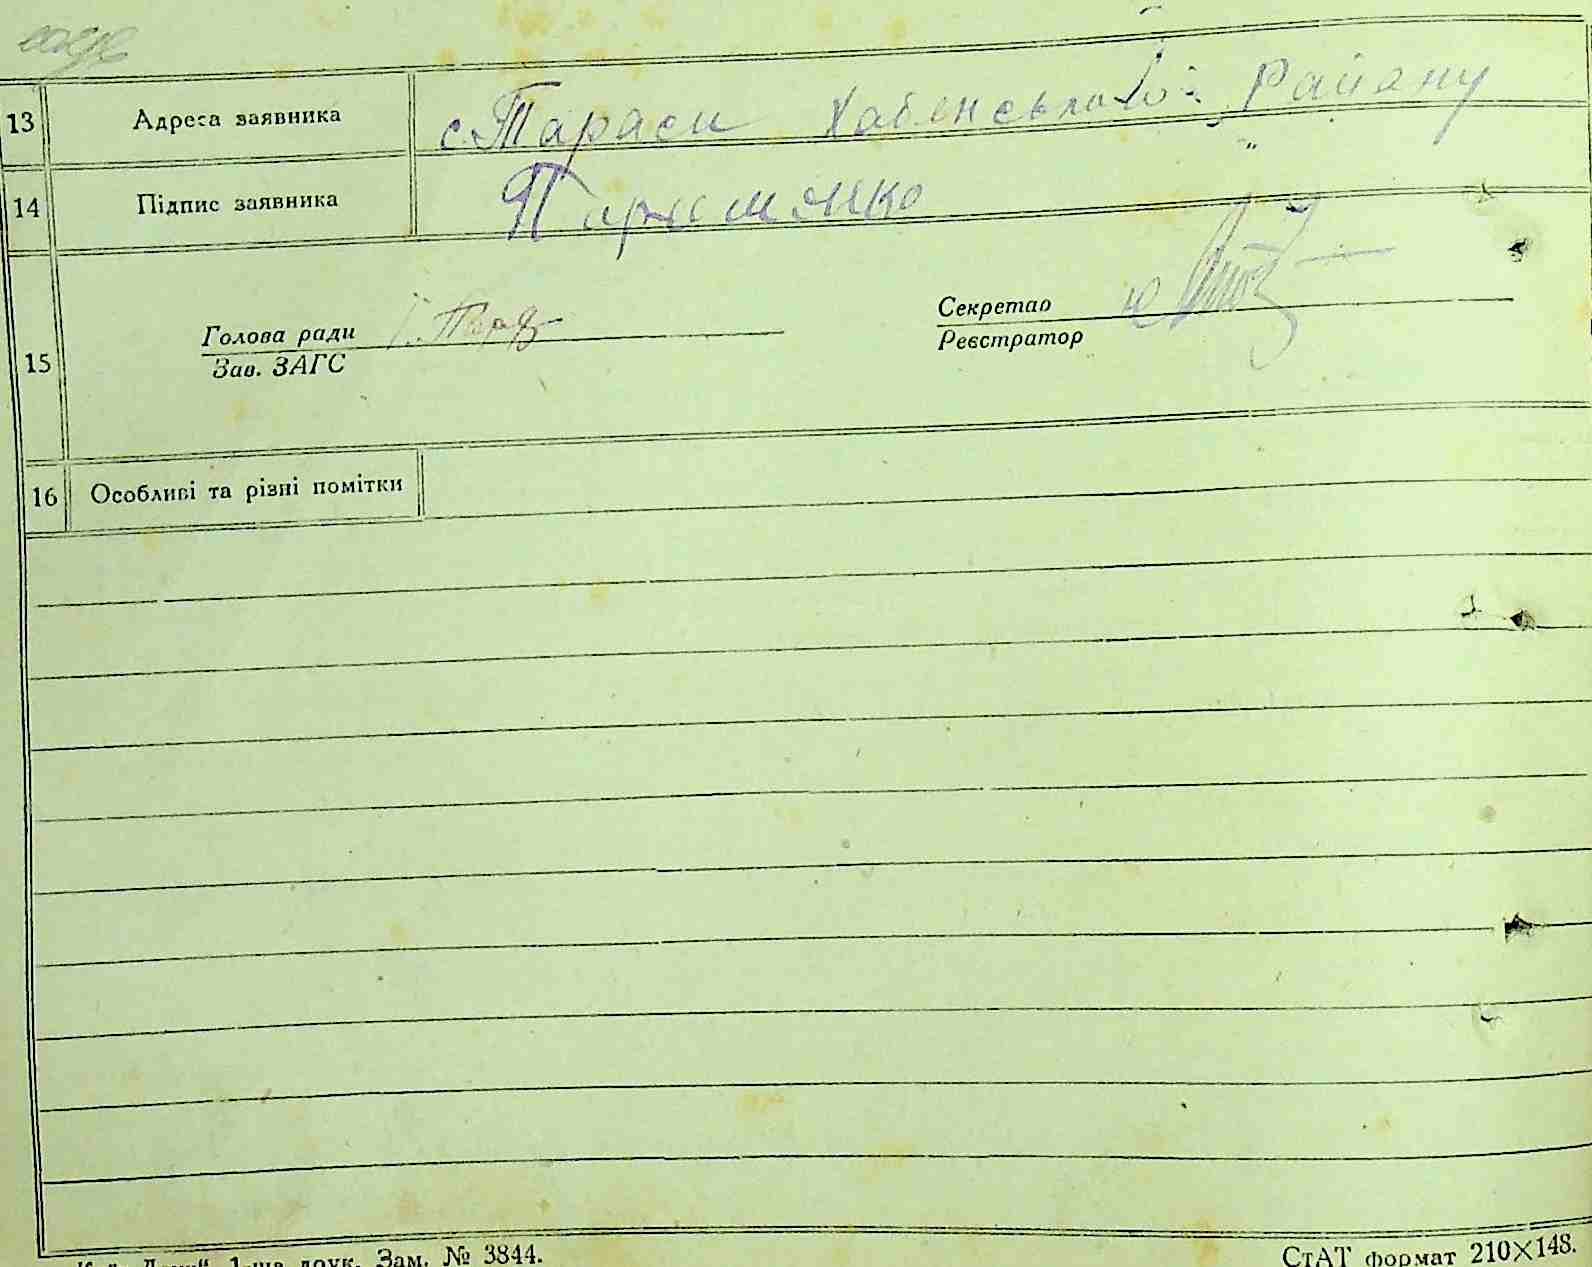 13 Адреса заявника с. Тараси Хабенського Району
14 Підпис заявника
15
Голова ради
Зав. ЗАГС
Секретар
Реєстратор
16 Особливі та різні помітки
друк. Зам. № 3844.
СтАТ формат 210×148.